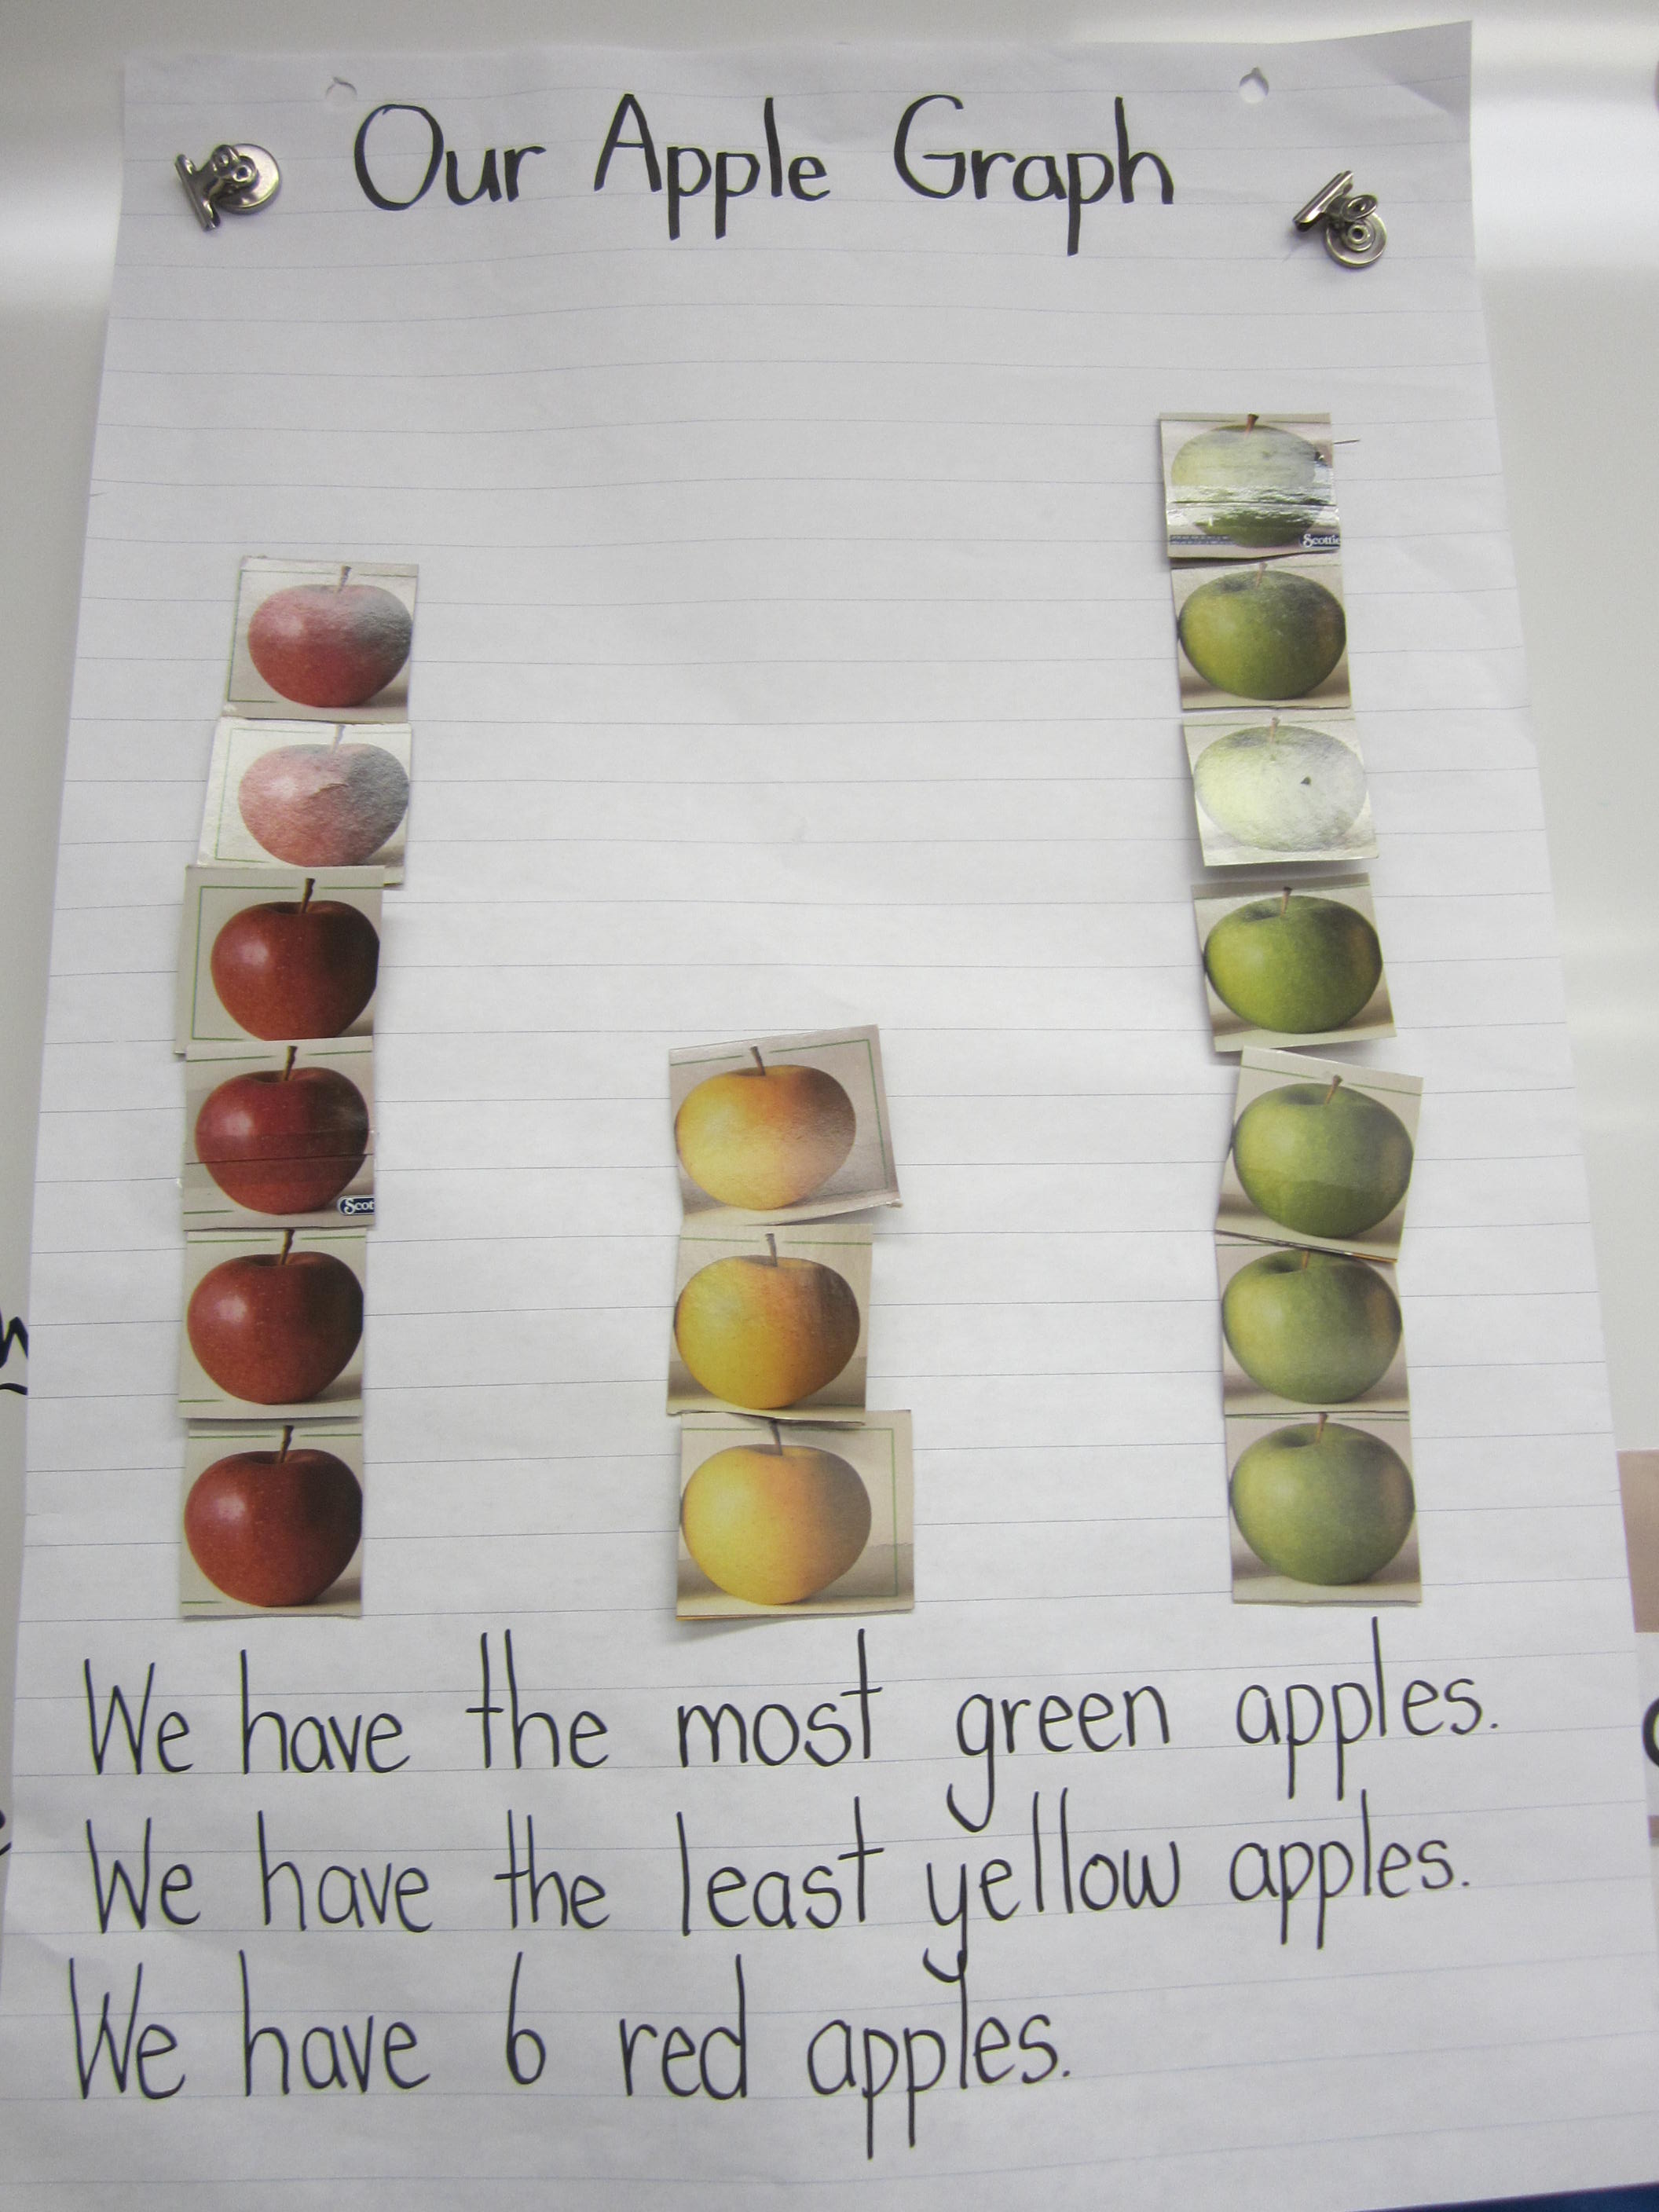 Our Apple Graph
Scottie
Scot
We have the most green apples.
We have the least yellow apples.
We have 6 red apples.